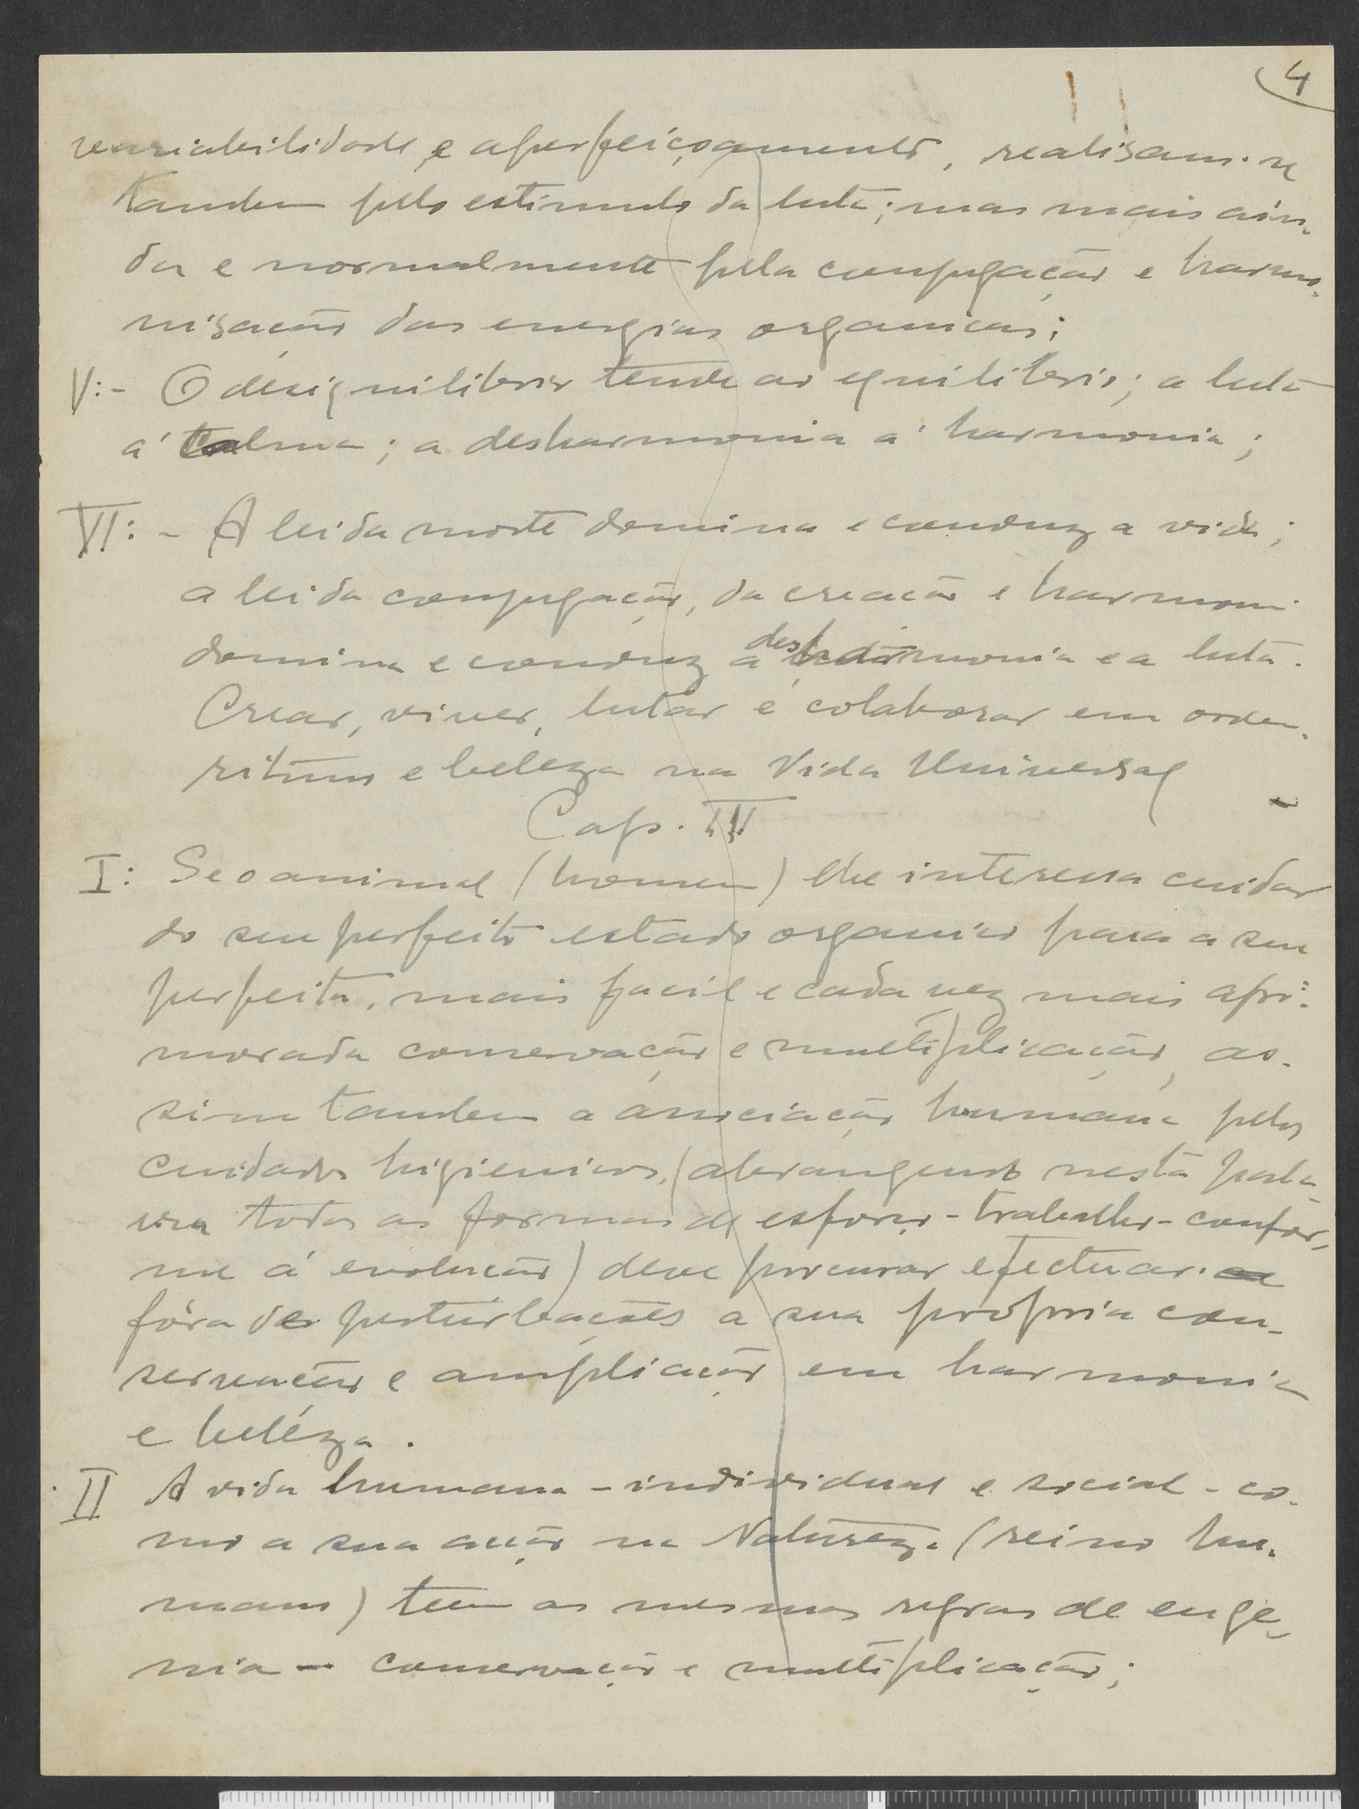 4
e aperfeiçoamento, realisam-se
tambem pelo estimulo da luta; mas mais ain-
da e normalmente pela conjugação e harmo-
nisação das energias organicas;
V:- O desiquilibrio tende ao equilibrio; a luta
á calma; a desharmonia á harmonia;
VI:- A lei da morte domina e conduz a vida;
a lei da conjugação, da creação e harmoni
domina e conduz a desharmonia e a luta.
Crear, viver, lutar é colaborar em ordem,
ritmo e beleza na Vida Universal
Cap. IV
I: Se o animal (homem) lhe interessa cuidar
do seu perfeito estado organico para a sua
perfeita, mais facil e cada vez mais apri-
morada conservação e multiplicação, as-
sim tambem a associação humana pelos
cuidados higienicos, (abrangendo nesta pala-
vra todas as formas de esforço - trabalho - confor-
me á evolução) deve procurar efectuar
fóra de perturbações a sua própria con-
servação e ampliação em harmonia
e beléza.
II A vida humana - individual e social - co-
mo a sua acção na Natureza (reino hu-
mano) tem as mesmas regras de euge-
nia - conservação e multiplicação;